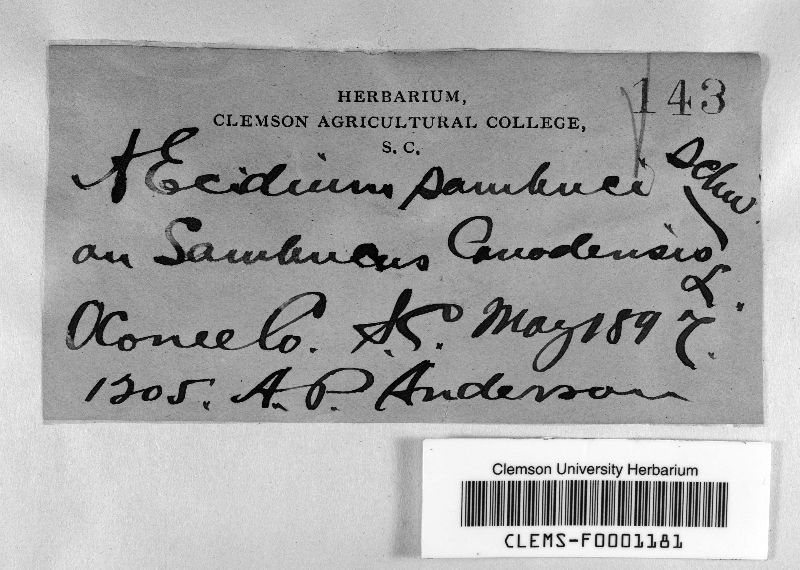 HERBARIUM,
143
CLEMSON AGRICULTURAL COLLEGE,
S. C.
AEcidium sambuci Schw.
on Sambucus Canadensis L.
Oconee Co. S.C. May 1897.
1205. A. P. Anderson
Clemson University Herbarium
CLEMS-F0001181